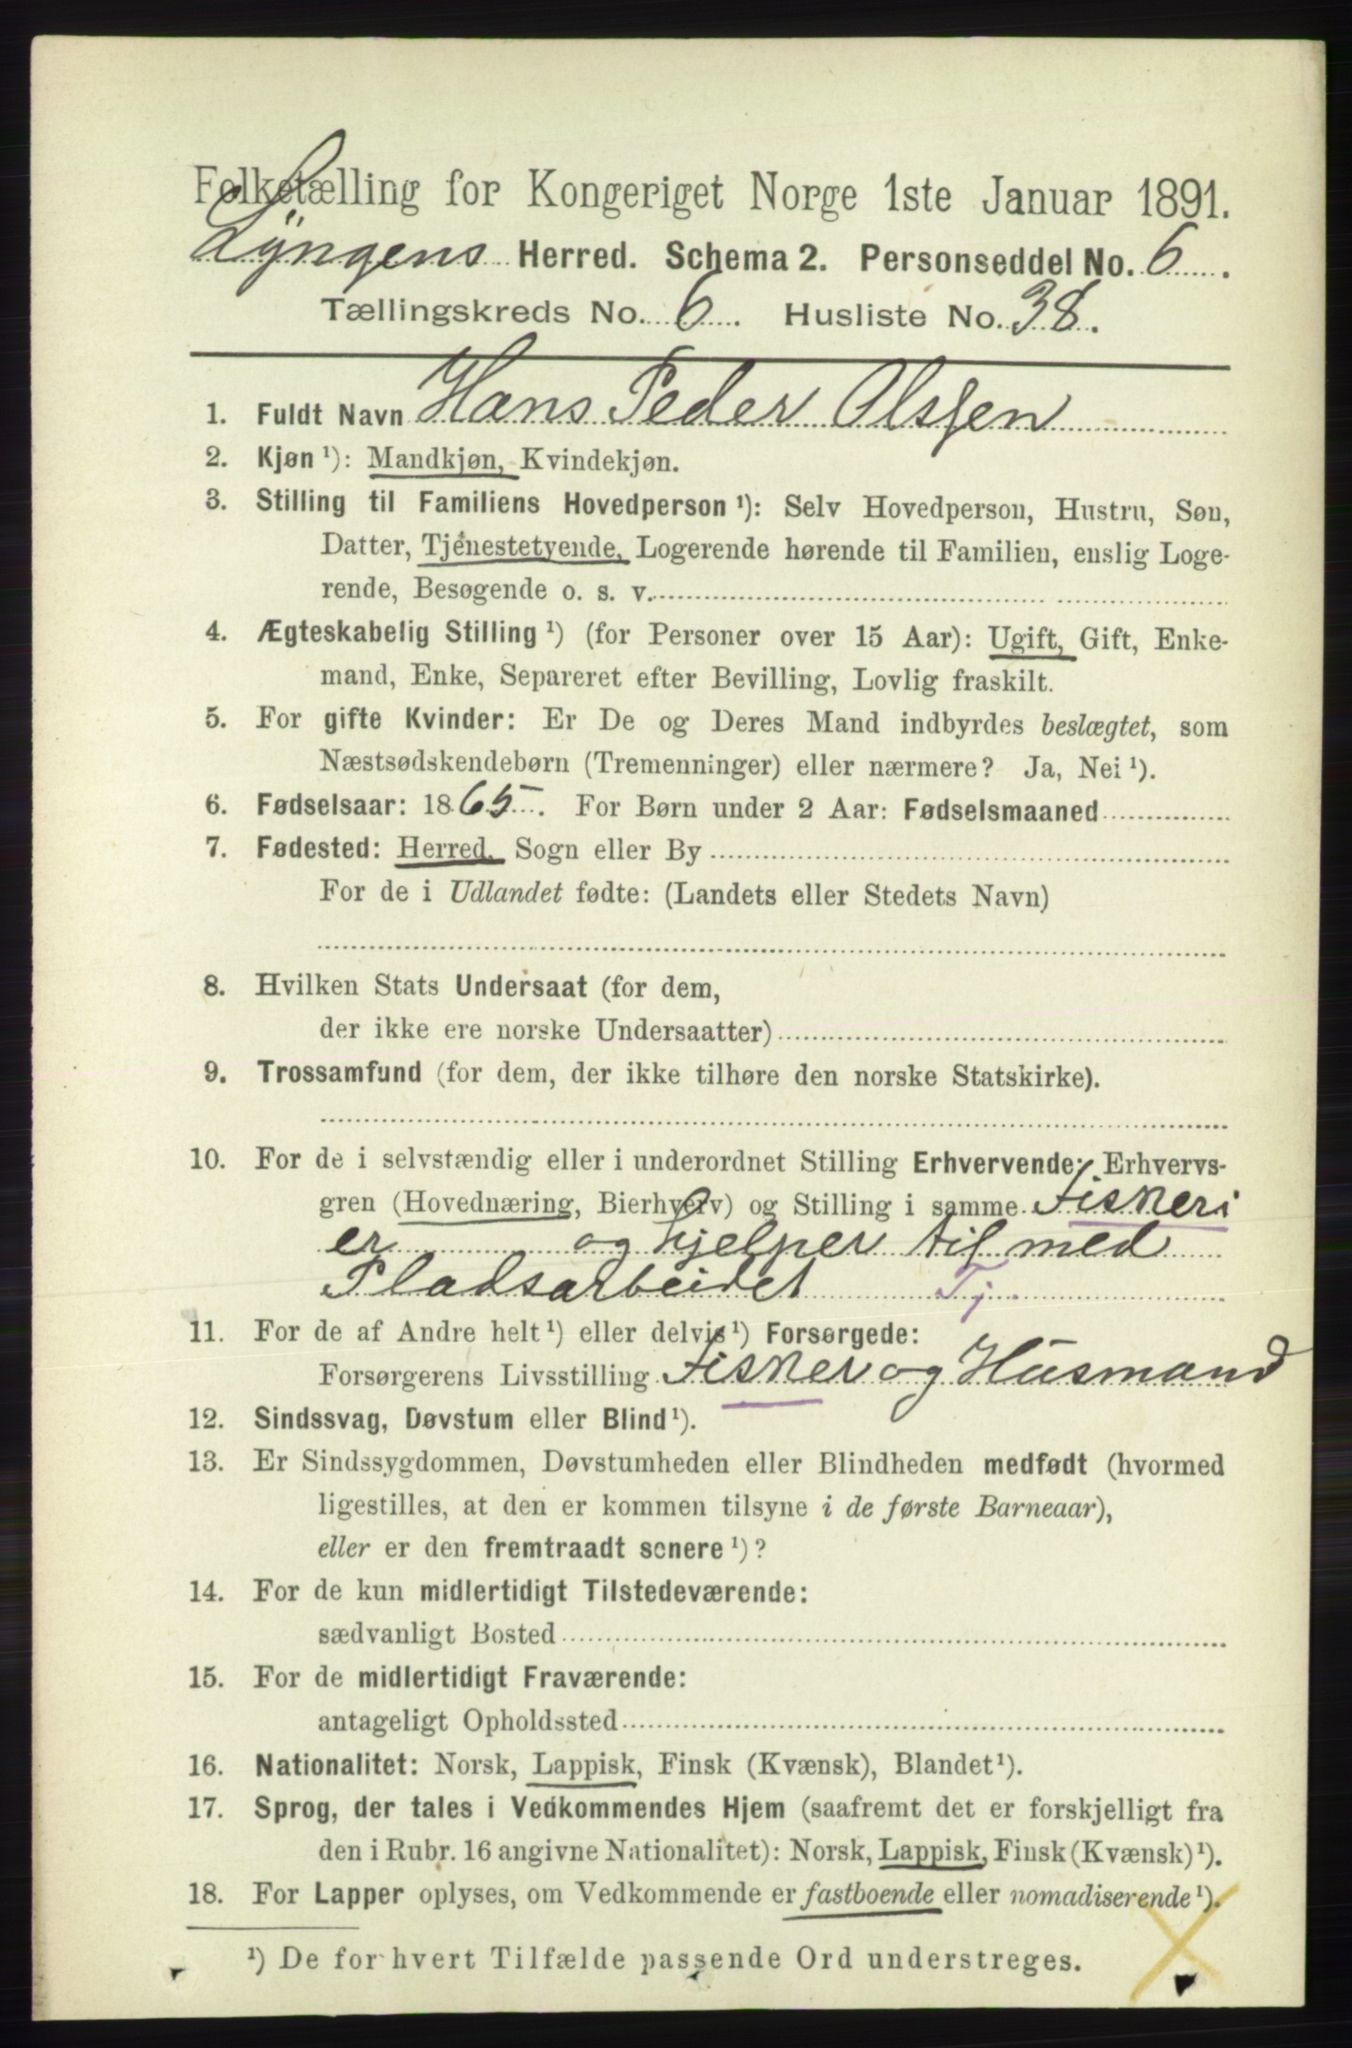 Folketælling for Kongeriget Norge 1ste Januar 1891.
Lyngens Herred. Schema 2. Personseddel No. 6.
Tællingskreds No. 6. Husliste No. 38.
1. Fuldt Navn Hans Peder Olssen
2. Kjøn ¹): Mandkjøn, Kvindekjøn.
3. Stilling til Familiens Hovedperson ¹): Selv Hovedperson, Hustru, Søn,
Datter, Tjenestetyende, Logerende hørende til Familien, enslig Loge-
rende, Besøgende o. s. v.
4. Ægteskabelig Stilling ¹) (for Personer over 15 Aar): Ugift, Gift, Enke-
mand, Enke, Separeret efter Bevilling, Lovlig fraskilt.
5. For gifte Kvinder: Er De og Deres Mand indbyrdes beslægtet, som
Næstsødskendebørn (Tremenninger) eller nærmere? Ja, Nei ¹).
6. Fødselsaar: 1865. For Børn under 2 Aar: Fødselsmaaned
7. Fødested: Herred, Sogn eller By
For de i Udlandet fødte: (Landets eller Stedets Navn)
8. Hvilken Stats Undersaat (for dem,
der ikke ere norske Undersaatter)
9. Trossamfund (for dem, der ikke tilhøre den norske Statskirke).
10. For de i selvstændig eller i underordnet Stilling Erhvervende: Erhvervs-
gren (Hovednæring, Bierhverv) og Stilling i samme Fiskeri
er og hjelper til med
Pladsarbeidet Tj.
11. For de af Andre helt ¹) eller delvis ¹) Forsørgede:
Forsørgerens Livsstilling Fisker og Husmand
12. Sindssvag, Døvstum eller Blind ¹).
13. Er Sindssygdommen, Døvstumheden eller Blindheden medfødt (hvormed
ligestilles, at den er kommen tilsyne i de første Barneaar),
eller er den fremtraadt senere ¹)?
14. For de kun midlertidigt Tilstedeværende:
sædvanligt Bosted
15. For de midlertidigt Fraværende:
antageligt Opholdssted
16. Nationalitet: Norsk, Lappisk, Finsk (Kvænsk), Blandet ¹).
17. Sprog, der tales i Vedkommendes Hjem (saafremt det er forskjelligt fra
den i Rubr. 16 angivne Nationalitet): Norsk, Lappisk, Finsk (Kvænsk) ¹).
18. For Lapper oplyses, om Vedkommende er fastboende eller nomadiserende ¹).
¹) De for hvert Tilfælde passende Ord understreges.